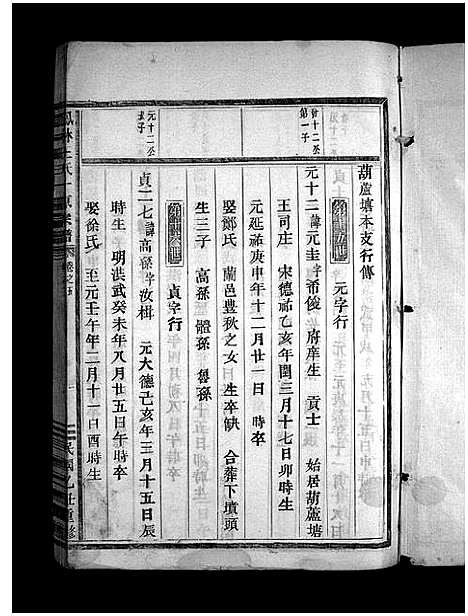 葫蘆塘本支行傳
元字行
曾十二公
第一子
元十三諱元圭字希俊 府庠生 貢士 始居葫蘆塘
王司庄 宋德祐乙亥年閏三月十七日卯時生
元延祐庚申年十二月廿一日 時卒
娶鄭氏 蘭邑豊秋之女 生卒缺 合葬下墳頭
生三子 高孫 體孫 魯孫
貞字行
元十三公
長子
貞二七諱高孫字汝楫 元大德己亥年三月十五日辰
時生 明洪武癸未年八月廿五日午時卒
娶徐氏 至元壬午年二月十一日酉時生
卷之五
民國乙丑重修